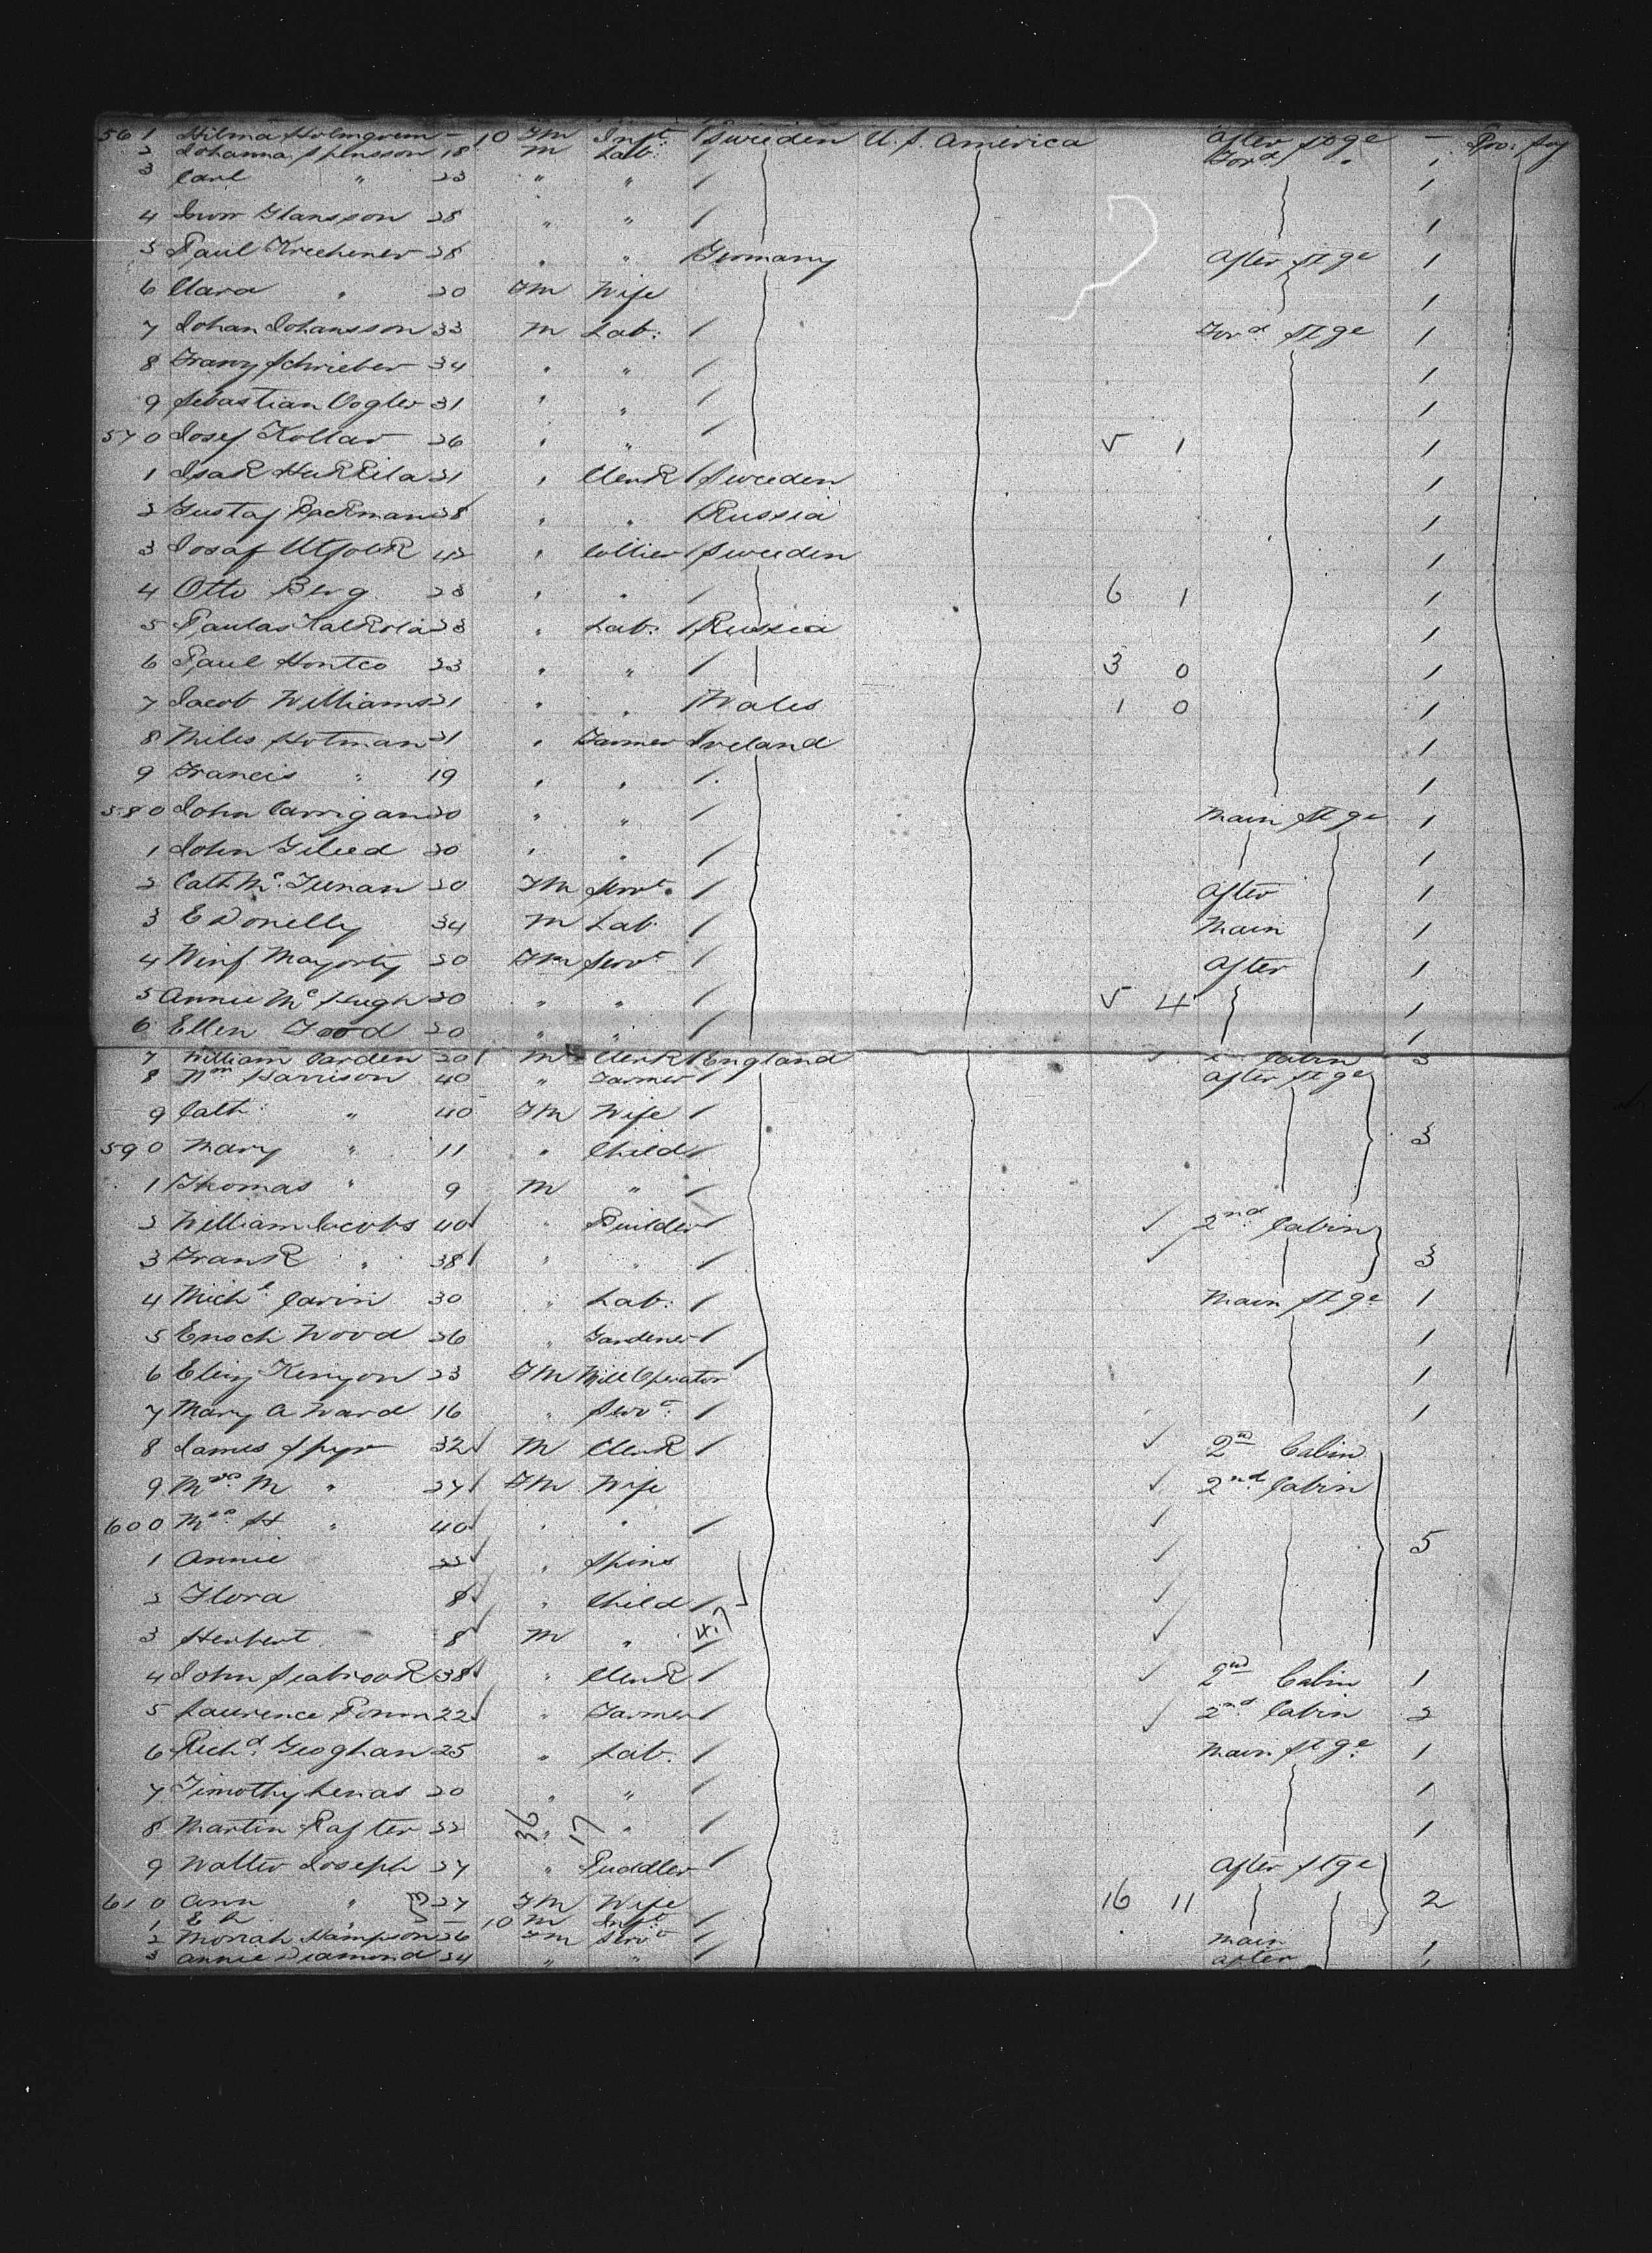 561 Hilma Holmgren - 10 Fm Inft Sweden U.S. America After stge - Pro. Soj
2 Johanna Spensson 18 m Lab: / Ford " 1
3 Carl " 23 " " / 1
4 Glansson 28 " " / 1
5 Paul Krechener 28 " " Germany After stge 1
6 Clara " 20 Fm Wife 1
7 Johan Johansson 33 m Lab: / Ford stge 1
8 Franz Schrieber 34 " " / 1
9 Sebastian Vogler 31 " " / 1
570 Josef Kollar 26 " " / 5 1 1
1 Isak 21 " Clerk / Sweden 1
2 Gustaf Backman 28 " " / Russia 1
3 Josaf 42 " Collier / Sweden 1
4 Otto Berg 28 " " / 6 1 1
5 23 " Lab: / Russia 1
6 Paul Hontco 23 " " / 3 0 1
7 Jacob Williams 21 " " / Wales 1 0 1
8 Miles Hotman 21 " Farmer Ireland 1
9 Francis " 19 " " / 1
580 John Carrigan 20 " " / Main stge 1
1 John 20 " " / 1
2 Cath Mc 20 Fm Servt / After 1
3 E Donelly 34 m Lab / Main 1
4 Winf 20 Fm Servt / After 1
5 Annie Mc Hugh 20 " " / 5 4 1
6 Ellen Food 20 " " / 1
7 William Carden 20 / m Clerk / England ✓ Cabin 3
8 Wm Harrison 40 " Farmer / After stge
9 Cath: " 40 Fm Wife /
590 Mary " 11 " Child / 3
1 Thomas " 9 m " /
2 William Jacobs 40 ✓ " Builder / ✓ 2nd Cabin
3 Frank " 38 / " " / ✓ 3
4 Michl Cavin 30 " Lab: / Main stge 1
5 Enoch Wood 26 " Gardener / 1
6 Eliz Kenyon 23 Fm Mill Operator / 1
7 Mary A Ward 16 " Servt / 1
8 James Spyr 32 ✓ m Clerk / ✓ 2nd Cabin
9 Mrs M " 27 / Fm Wife ✓ 2nd Cabin
600 Mrs H " 40 ✓ " " / ✓
1 Annie 22 ✓ " Spins ✓ 5
2 Flora 8 ✓ " Child / ✓
3 Herbert 8 ✓ m " / 47 ✓
4 John Seabrook 38 ✓ " Clerk / ✓ 2nd Cabin 1
5 Laurence 22 ✓ " Farmer / ✓ 2nd Cabin 2
6 Richd Geoghan 25 " Lab: / Main stge 1
7 Timothy 20 " " / 1
8 Martin Rafter 22 36 " 17 " / 1
9 Walter Joseph 27 " Puddler / After stge
610 Ann " 27 Fm Wife 16 11 2
1 E A " - 10 m Inft /
2 Moriah Hampson 26 Fm Servt / Main 1
3 Annie Diamond 24 " " / After 1